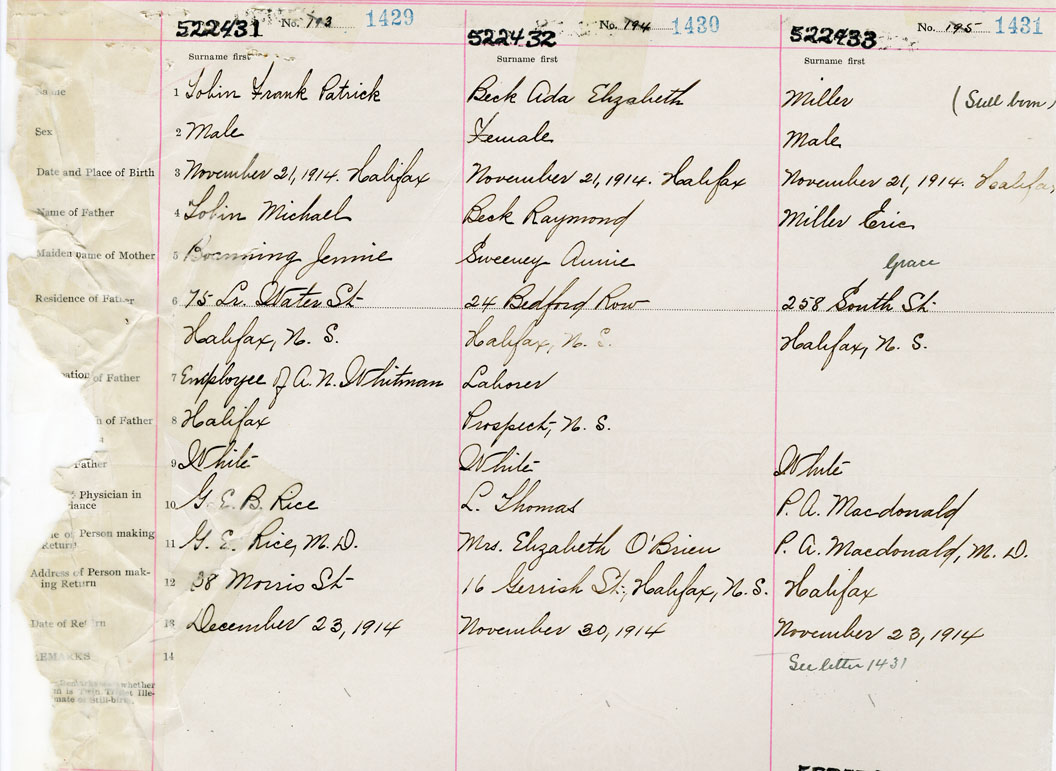 522431 No. 193 1429
522432 No. 194 1430
522433 No. 195 1431
Surname first
Surname first
Surname first
Name 1 Tobin Frank Patrick
Beck Ada Elizabeth
Miller (Still born)
Sex 2 Male
Female
Male
Date and Place of Birth 3 November 21, 1914. Halifax
November 21, 1914. Halifax
November 21, 1914. Halifax
Name of Father 4 Tobin Michael
Beck Raymond
Miller Eric
Maiden name of Mother 5 Jennie
Sweeney Annie
Grace
Residence of Father 6 75 Lr. Water St.
24 Bedford Row
258 South St.
Halifax, N. S.
Halifax, N. S.
Halifax, N. S.
ation of Father 7 Employee of A. N. Whitman
Laborer
n of Father 8 Halifax
Prospect, N. S.
Father 9 White
White
White
Physician in
dance 10 G. E. B. Rice
L. Thomas
P. A. Macdonald
e of Person making
Return 11 G. E. Rice, M. D.
Mrs. Elizabeth O'Brien
P. A. Macdonald, M. D.
Address of Person mak-
ing Return 12 38 Morris St.
16 Gerrish St., Halifax, N. S.
Halifax
Date of Return 13 December 23, 1914
November 30, 1914
November 23, 1914
REMARKS 14
See letter 1431
whether
m is Twin Triplet Ille-
mate or Still-birth